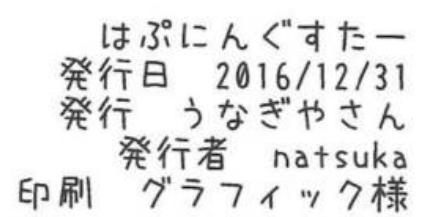 はぷにんぐすたー
発行日　2016/12/31
発行　うなぎやさん
発行者　natsuka
印刷　グラフィック様